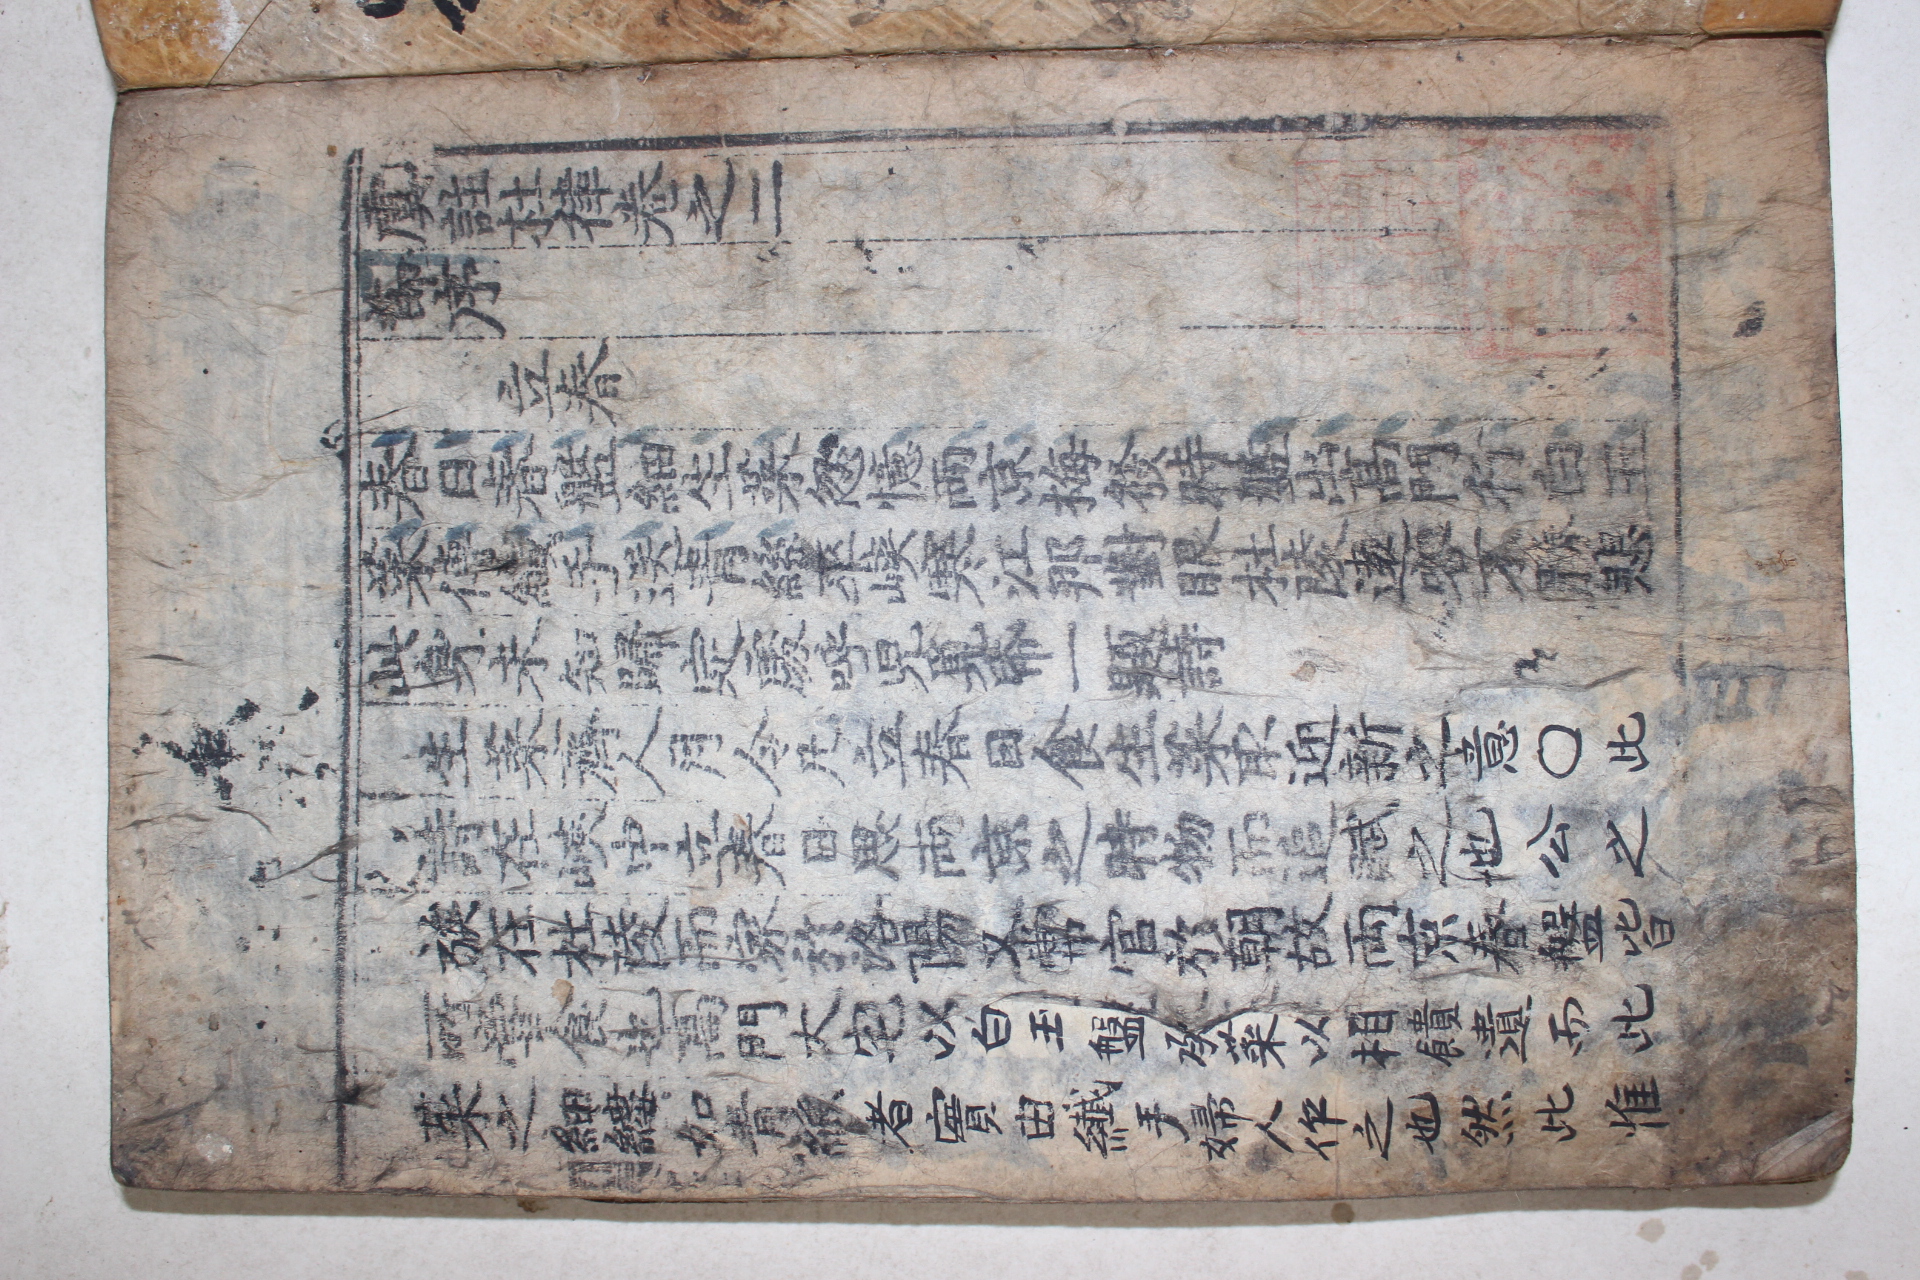 虞註杜律卷之二
節序
立春
春日春盤細生菜忽憶兩京梅發時盤出高門行白玉
菜傳纖手送青絲巫峽寒江那對眼杜陵遠客不勝悲
此身未知歸定處呼兒覓紙一題詩
生菜齊人月令凡立春日食生菜取迎新之意〇此
詩在峽中立春日思兩京之時物而追賦之也公之
族在杜陵而家於洛陽又常官於朝故兩京春盤皆
所嘗食也高門大宅以白玉盤承菜以相饋遺而此
菜之細縷如青絲者實由纖手婦人作之也然此惟